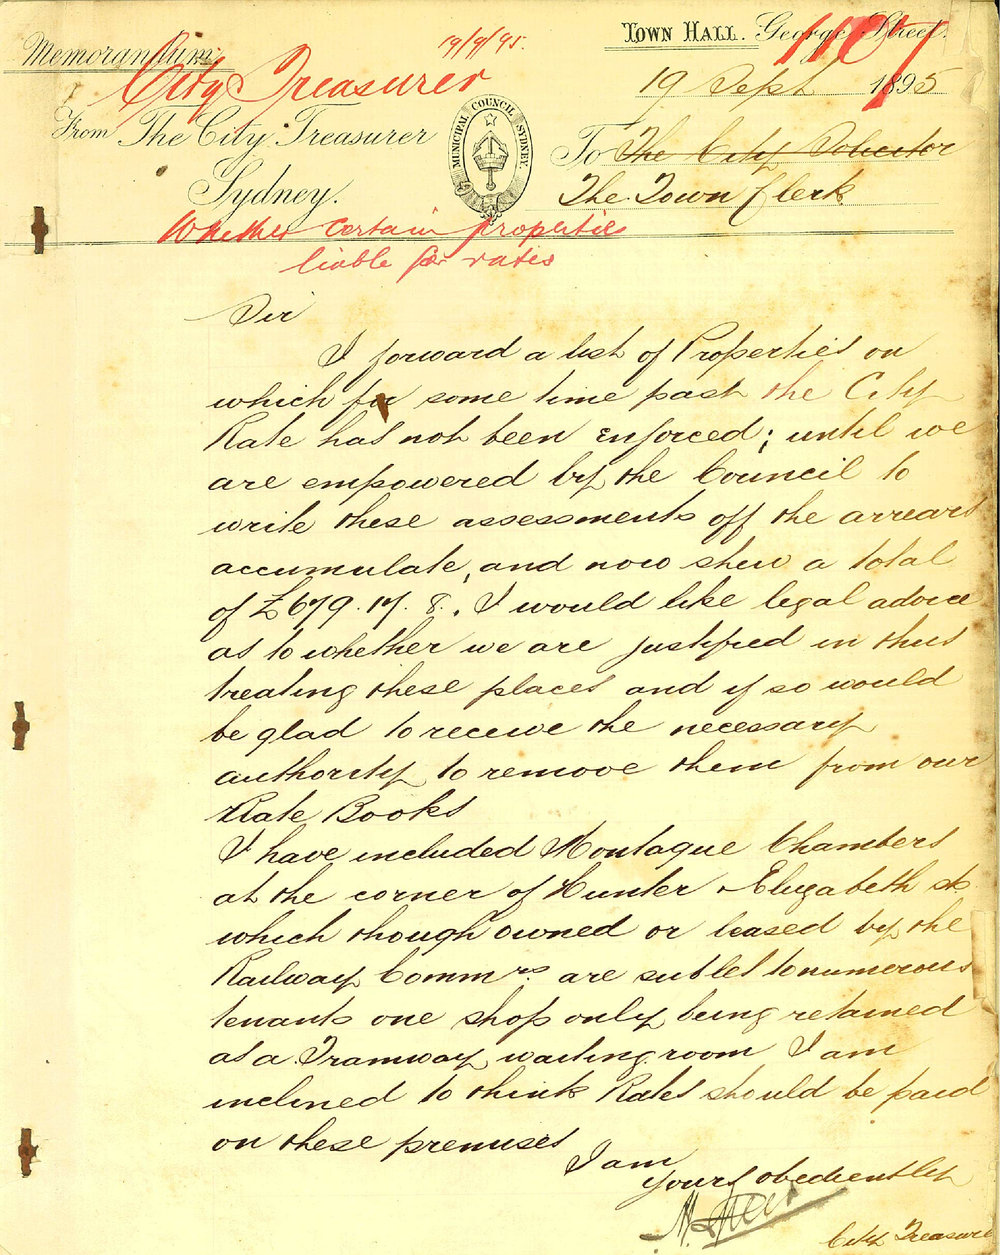 19/9/95.
Memorandum.
City Treasurer
1107
TOWN HALL. George Street.
19 Sept 1895
From The City Treasurer
Sydney.
MUNICIPAL COUNCIL SYDNEY.
To The City Solicitor
The Town Clerk
Whether certain properties
liable for rates
Sir
I forward a list of Properties on
which for some time past the City
Rate has not been enforced; until we
are empowered by the Council to
write these assessments off the arrears
accumulate, and now shew a total
of £679.17.8. I would like legal advice
as to whether we are justified in thus
treating these places and if so would
be glad to receive the necessary
authority to remove them from our
Rate Books
I have included Montague Chambers
at the corner of Hunter & Elizabeth St
which though owned or leased by the
Railway Commrs. are sublet to numerous
tenants one shop only being retained
as a Tramway waiting room I am
inclined to think Rates should be paid
on these premises
I am
yours obediently
City Treasurer